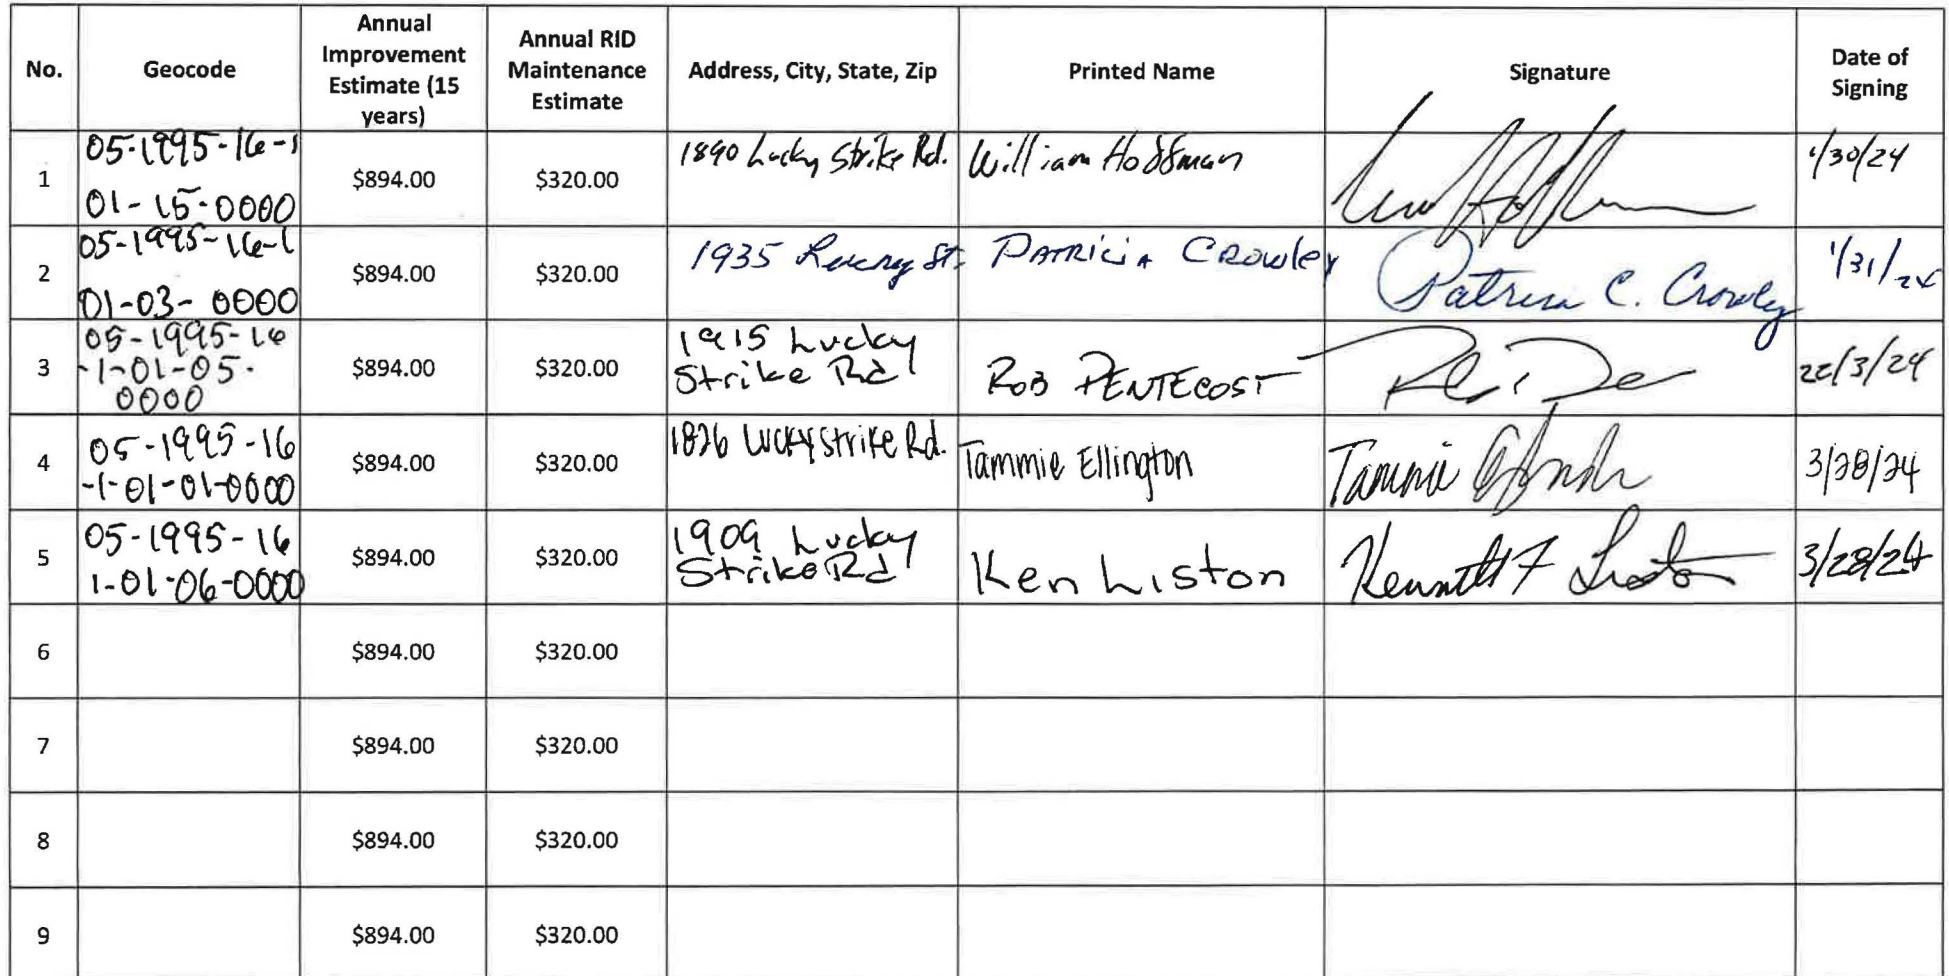 No. Geocode Annual Improvement Estimate (15 years) Annual RID Maintenance Estimate Address, City, State, Zip Printed Name Signature Date of Signing
1 05-1995-16-1 01-15-0000 $894.00 $320.00 1890 Lucky Strike Rd. William Hoffman 1/30/24
2 05-1995-16-1 01-03-0000 $894.00 $320.00 1935 St. PATRICIA CROWLEY Patricia C. Crowley 1/31/24
3 05-1995-16 -1-01-05-0000 $894.00 $320.00 1915 Lucky Strike Rd ROB PENTECOST /3/24
4 05-1995-16 -1-01-01-0000 $894.00 $320.00 1826 Lucky Strike Rd. Tammie Ellington Tammie 3/28/24
5 05-1995-16 1-01-06-0000 $894.00 $320.00 1909 Lucky Strike Rd Ken Liston Kenneth F Liston 3/28/24
6 $894.00 $320.00
7 $894.00 $320.00
8 $894.00 $320.00
9 $894.00 $320.00